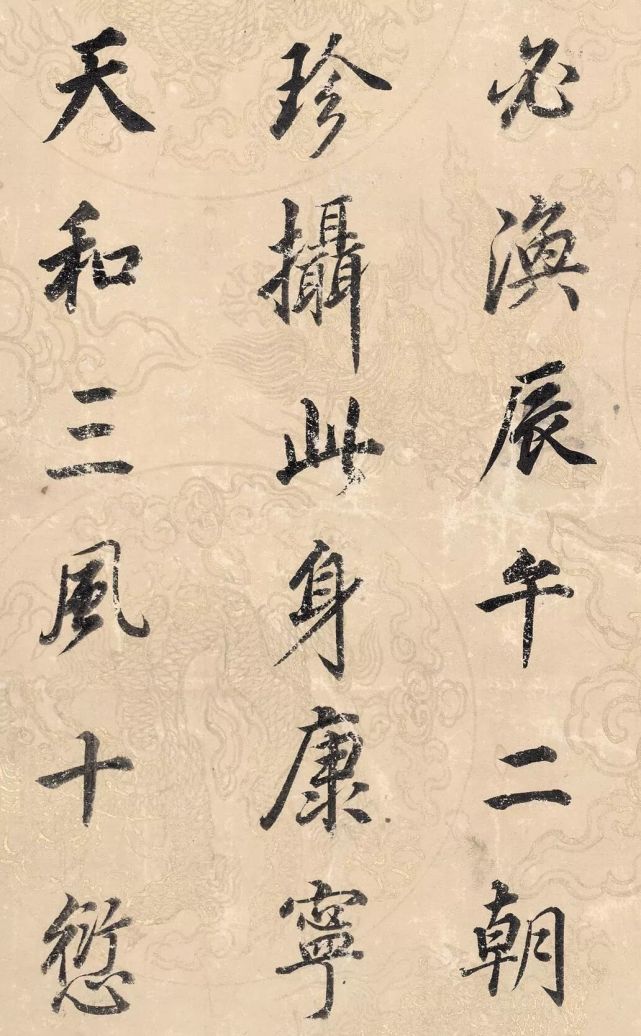 必渙辰午二朝
珍攝此身康寧
天和三風十愆